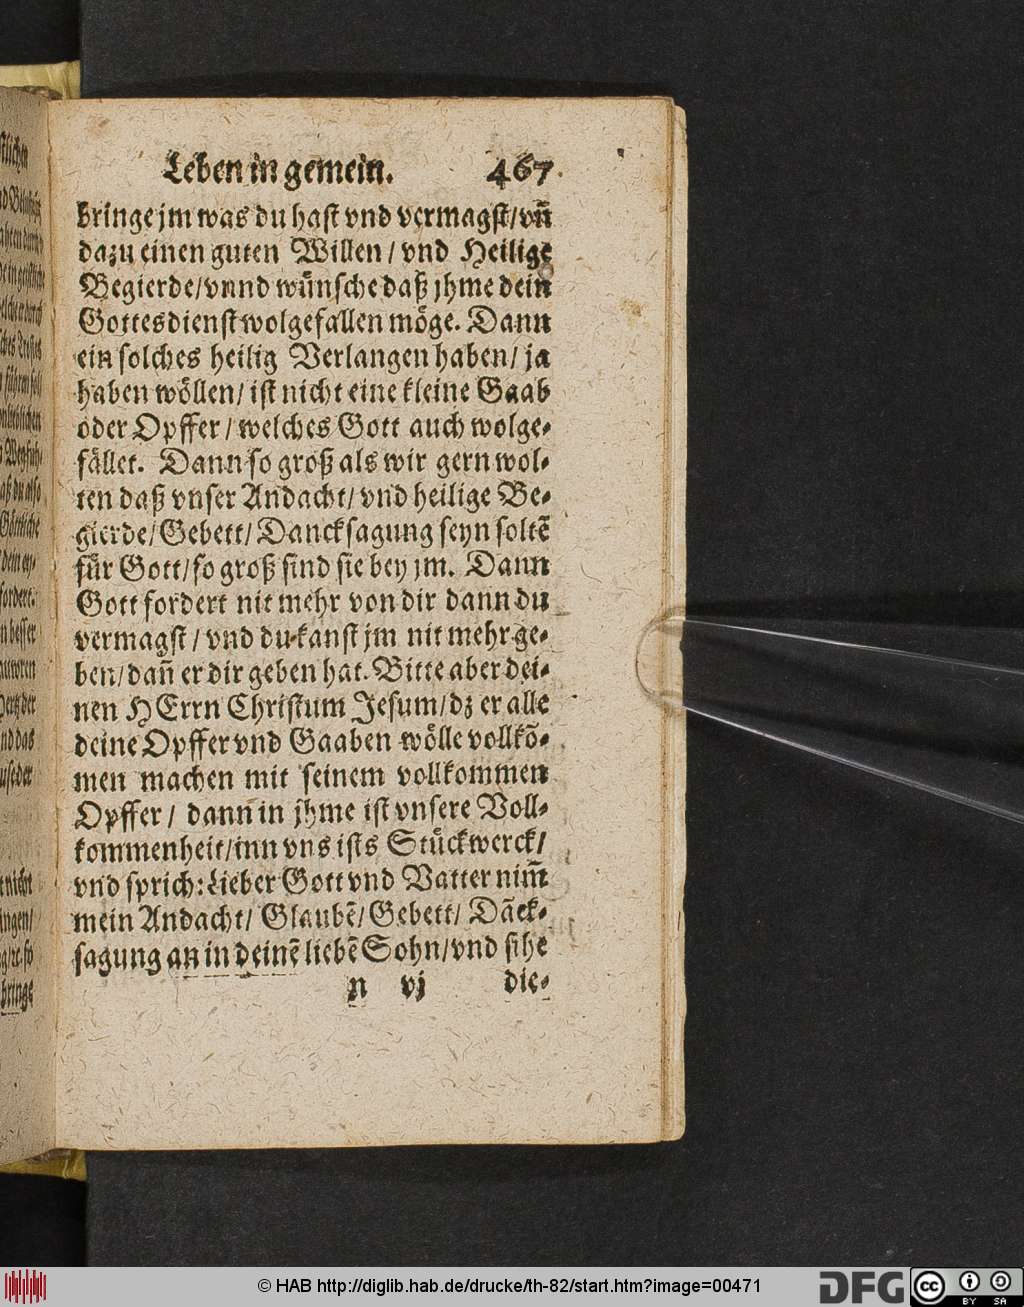 Leben in gemein. 467
bringe jm was du hast vnd vermagst/vñ
dazu einen guten Willen/ vnd Heilige
Begierde/vnnd wünsche daß jhme dein
Gottesdienst wolgefallen möge. Dann
ein solches heilig Verlangen haben/ ja
haben wöllen/ ist nicht eine kleine Gaab
oder Opffer/ welches Gott auch wolge-
fället. Dann so groß als wir gern wol-
ten daß vnser Andacht/ vnd heilige Be-
gierde/ Gebett/ Dancksagung seyn soltẽ
für Gott/ so groß sind sie bey jm. Dann
Gott fordert nit mehr von dir dann du
vermagst/ vnd du kanst jm nit mehr ge-
ben/ dañ er dir geben hat. Bitte aber dei-
nen HErrn Christum Jesum/ dz er alle
deine Opffer vnd Gaaben wölle vollkõ-
men machen mit seinem vollkommen
Opffer/ dann in jhme ist vnsere Voll-
kommenheit/inn vns ists Stückwerck/
vnd sprich: Lieber Gott vnd Vatter nim̃
mein Andacht/ Glaubẽ/ Gebett/ Dãck-
sagung an in deinẽ liebẽ Sohn/vnd sihe
n vj die-
© HAB http://diglib.hab.de/drucke/th-82/start.htm?image=00471
DFG
cc BY SA